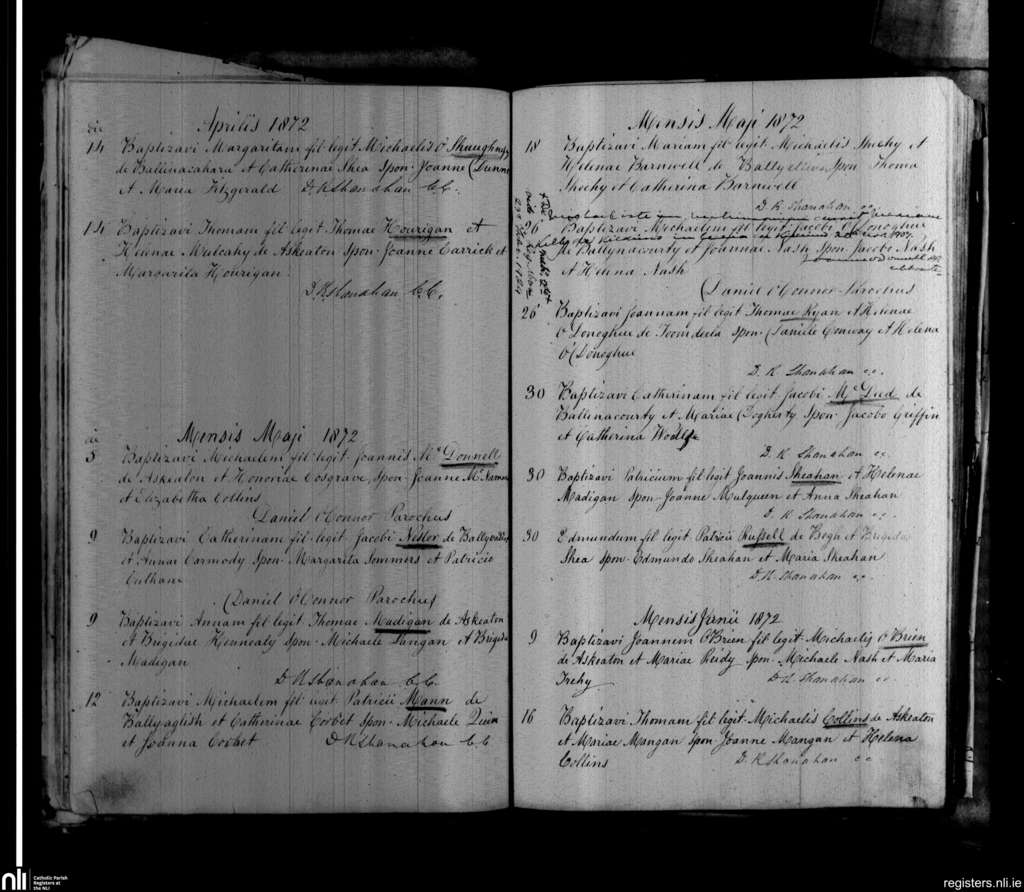 die
Aprilis 1872
14 Baptizavi Margaritam fil legit Michaelis O'Shaughnessy
de Ballinacahara et Catherinae Shea Spon Joanne Dunne
et Maria Fitzgerald D. K Shanahan C.C.
14 Baptizavi Thomam fil legit Thomae Hourigan et
Helenae Mulcahy de Askeaton Spon Joanne Carrick et
Margarita Hourigan
D. K Shanahan C.C.
die
Mensis Maji 1872
5 Baptizavi Michaelem fil legit Joannis Mc Donnell
de Askeaton et Honoriae Cosgrave, Spon Joanne
et Elizabetha Collins
Daniel O'Connor Parochus
9 Baptizavi Catherinam fil legit Jacobi Nestor de
et Annae Carmody Spon Margarita Sommers et Patricio
Culhane
Daniel O'Connor Parochus
9 Baptizavi Annam fil legit Thomae Madigan de Askeaton
et Brigidae Kenneally Spon Michaele Langan et Brigida
Madigan
D. K Shanahan C.C.
12 Baptizavi Michaelem fil legit Patricii Mann de
Ballyaglish et Catherinae Corbet Spon Michaele Quin
et Joanna Corbet D K Shanahan C.C
Mensis Maji 1872
18 Baptizavi Mariam fil legit Michaelis Sheehy et
Helenae Barnwell de Spon Thoma
Sheehy et Catherina Barnwell
D. K Shanahan cc
Baptizavi Michaelem fil legit Jacobi O'Donoghue
de Ballynacourty et Joannae Nash Spon Jacobo Nash
et Helena Nash
Daniel O'Connor Parochus
26 Baptizavi Joannam fil legit Thomae Ryan et Helenae
O'Donoghue de Toomdeela Spon Daniele Conway et Helena
O'Donoghue
D. K Shanahan c.c.
30 Baptizavi Catherinam fil legit Jacobi Mc Deed de
Ballinacourty et Mariae Dogherty Spon Jacobo Griffin
et Catherina Woulfe
D. K Shanahan cc.
30 Baptizavi Patricium fil legit Joannis Sheahan et Helenae
Madigan Spon Joanne Mulqueen et Anna Sheahan
D. K Shanahan c.c.
30 Edmundum fil legit Patricii Russell de Bogh et Brigidae
Shea Spon Edmundo Sheahan et Maria Sheahan
D. K Shanahan cc.
Mensis Junii 1872
9 Baptizavi Joannem O'Brien fil legit Michaelis O'Brien
de Askeaton et Mariae Reidy Spon Michaele Nash et Maria
D. K Shanahan cc.
16 Baptizavi Thomam fil legit Michaelis Collins de Askeaton
et Mariae Mangan Spon Joanne Mangan et Helena
Collins D. K Shanahan cc
nli
Catholic Parish
Registers at
the NLI
registers.nli.ie